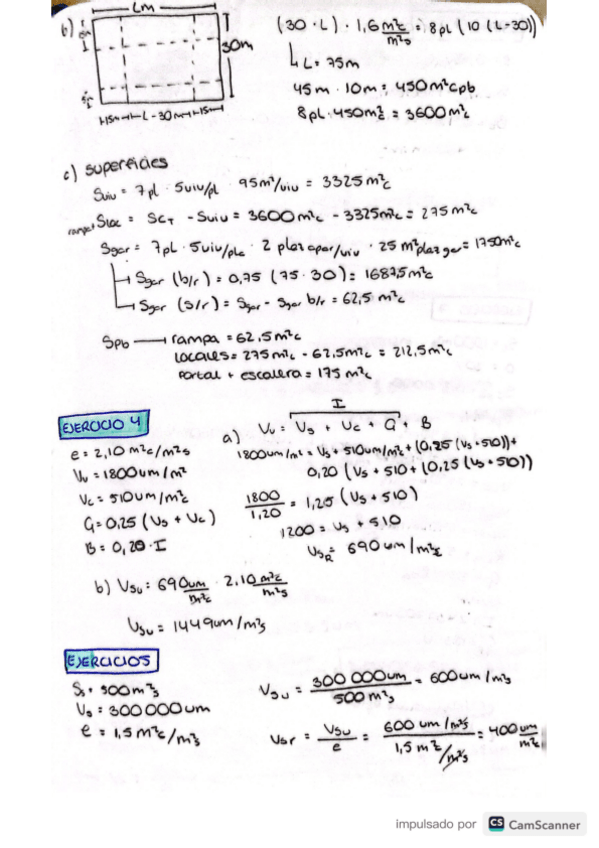 Lm
b)
30m
15m L-30m 15m
(30 · L) · 1,6 m²c/m²s = 8 pl (10 (L-30))
L = 75m
45m · 10m = 450m²cpb
8pl · 450m²c = 3600m²c
c) superficies
Sviv = 7pl · 5viv/pl · 95m²/viv = 3325m²c
Sloc = SCT - Sviv = 3600m²c - 3325m²c = 275m²c
Sgar = 7pl · 5viv/pla · 2 plaz apar/viv · 25 m²plaz gar = 1750m²c
Sgar (b/r) = 0,75 (75 · 30) = 1687,5m²c
Sgar (s/r) = Sgar - Sgar b/r = 62,5m²c
Spb → rampa = 62,5m²c
locales = 275m²c - 62,5m²c = 212,5m²c
portal + escalera = 175m²c
EJERCICIO 4
e = 2,10 m²c/m²s
Vv = 1800um/m²
Vc = 510um/m²c
G = 0,25 (Vs + Vc)
B = 0,20 · I
I
a) Vv = Vs + Vc + G + B
1800um/m² = Vs + 510um/m²c + (0,25 (Vs + 510)) +
0,20 (Vs + 510 + (0,25 (Vs + 510))
1800/1,20 = 1,25 (Vs + 510)
1200 = Vs + 510
VsR = 690um/m²c
b) Vsu = 690 um/m²c · 2,10 m²c/m²s
Vsu = 1449um/m²s
EJERCICIO 5
Ss = 500m²s
Vs = 300000um
e = 1,5m²c/m²s
Vsu = 300 000um/500 m²s = 600um/m²s
Vsr = Vsu/e = 600 um/m²s / 1,5 m²c/m²s = 400 um/m²c
impulsado por CS CamScanner